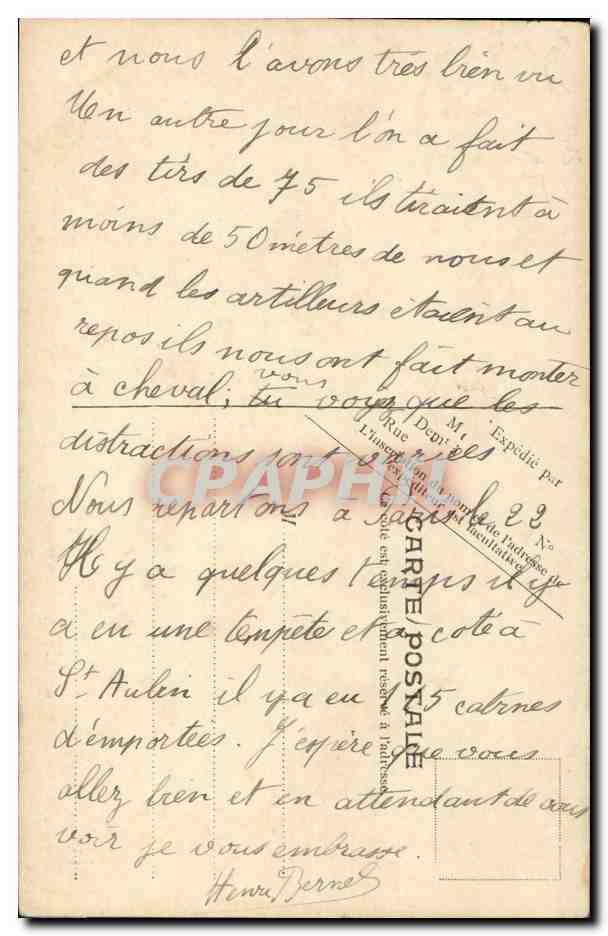 et nous l'avons très bien vu
Un autre jour l'on a fait
des tirs de 75 ils tiraient à
moins de 50 mètres de nous et
quand les artilleurs étaient au
repos ils nous ont fait monter
à cheval; tu vous voyez que les
distractions sont variées
Nous repartons à Paris le 22
Il y a quelques temps il y
a eu une tempête et à coté à
St. Aubin il y a eu 5 cabines
d'emportées. J'espère que vous
allez bien et en attendant de vous
voir je vous embrasse.
Henri Bernel
Expédié par
M
Demt
Rue
N°
L'inscription du nom et de l'adresse de
l'expéditeur est facultative
CARTE POSTALE
Ce côté est exclusivement réservé à l'adresse
CPAPHIL